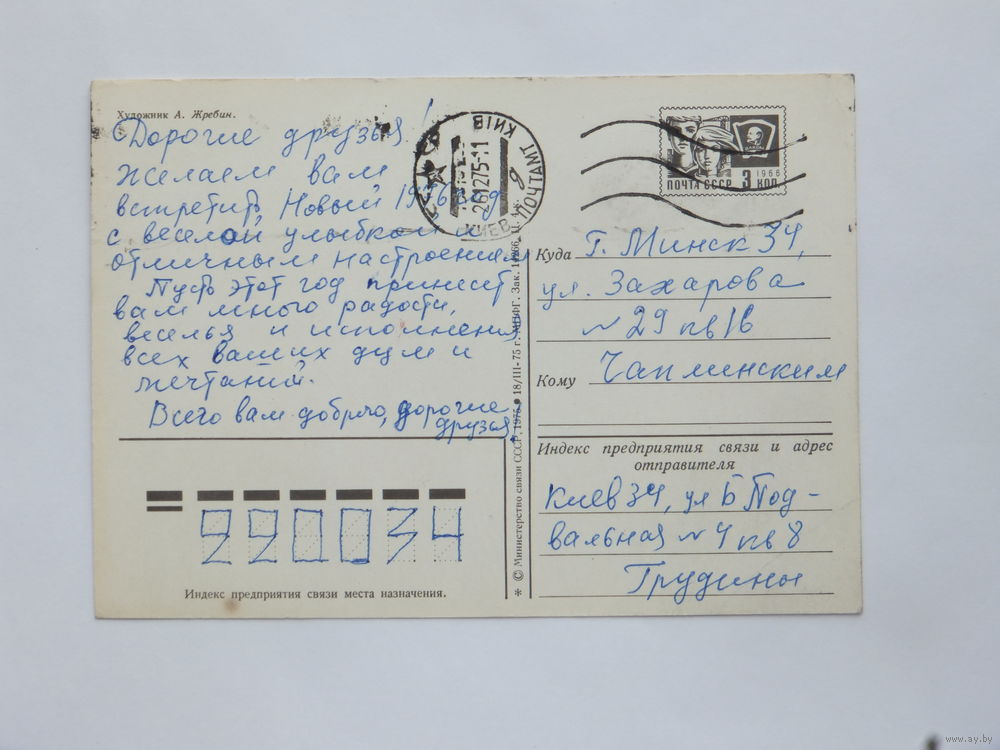 Художник А. Жребин.
Дорогие друзья!
Желаем вам
встретить Новый 1976 год
с веселой улыбкой и
отличным настроением
Пусть этот год принесет
вам много радости,
веселья и исполнения
всех ваших дум и
мечтаний.
Всего вам доброго, дорогие
друзья.
КИЇВ
ПОЧТАМТ
261275-11
КИЕВ
ПОЧТА СССР 3 КОП
1966
Куда Г. Минск 34,
ул. Захарова
№ 29 кв 16
Кому Чаплинским
Индекс предприятия связи и адрес
отправителя
Киев 34, ул Б Под-
вальная № 4 кв 8
Грудины
220034
Индекс предприятия связи места назначения.
* © Министерство связи СССР, 1975 * 18/III-75 г. МПФГ. Зак.
www.ay.by